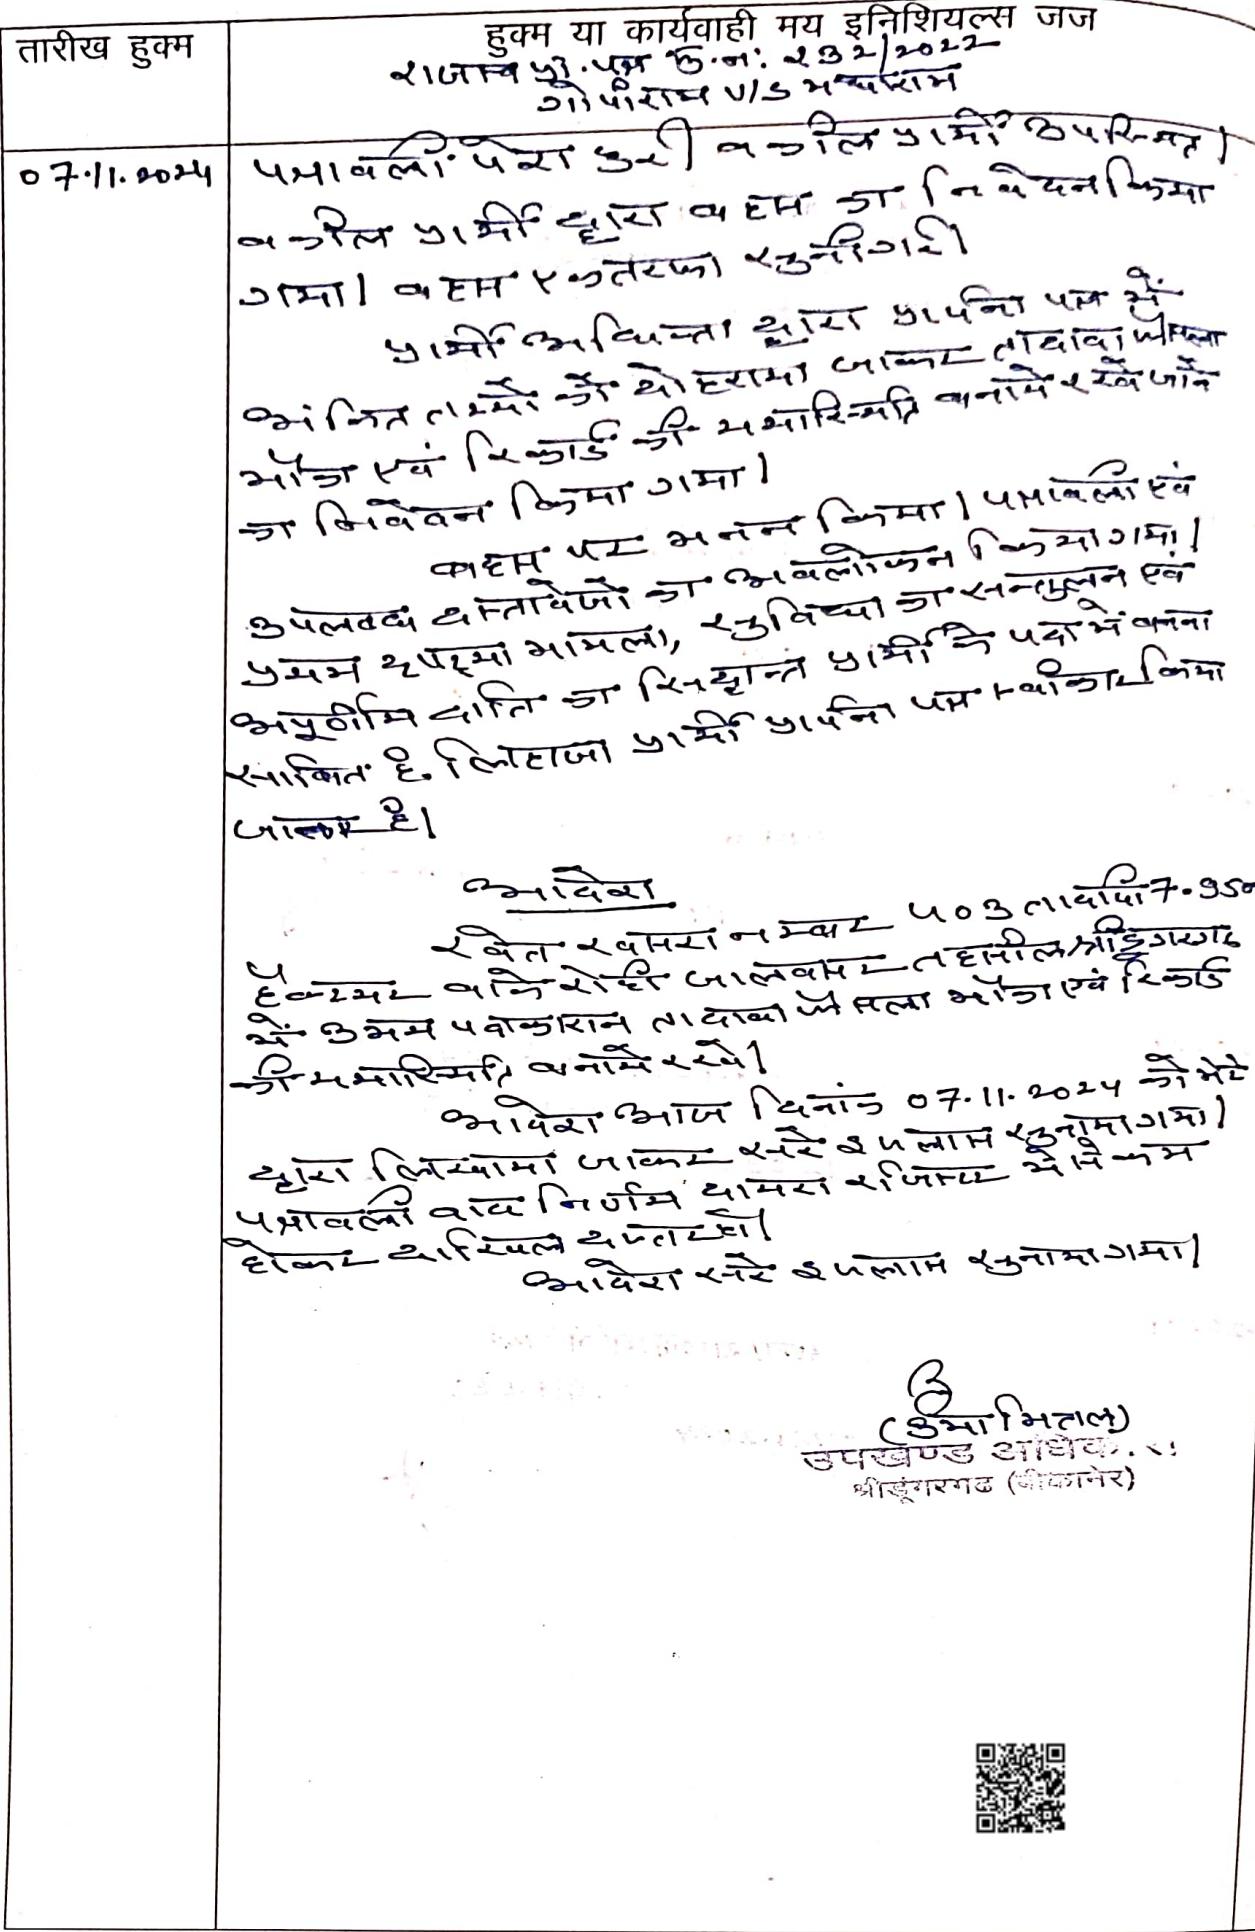 तारीख हुक्म
हुक्म या कार्यवाही मय इनिशियल्स जज
राजस्व प्रा. पत्र मु.न. 232/2022
गोपीराम V/S मघाराम
07.11.2024
पत्रावली पेश हुई। वकील प्रार्थी उपस्थित।
वकील प्रार्थी द्वारा बहस का निवेदन किया
गया। बहस एकतरफा सुनी गई।
प्रार्थी अधिवक्ता द्वारा प्रार्थना पत्र में
अंकित तथ्यों को दोहराया जाकर तादावा फैसला
मौका एवं रिकार्ड की यथास्थिति बनाये रखे जाने
का निवेदन किया गया।
बहस पर मनन किया। पत्रावली एवं
उपलब्ध दस्तावेजों का अवलोकन किया गया।
प्रथम दृष्टया मामला, सुविधा का सन्तुलन एवं
अपूर्णीय क्षति का सिद्धान्त प्रार्थी के पक्ष में बनना
साबित है. लिहाजा प्रार्थी प्रार्थना पत्र स्वीकार किया
जाकर है।
आदेश
खेत खसरा नम्बर 503 तादादी 7.950
हैक्टयर वाके रोही जालबसर तहसील श्रीडूंगरगढ
में उभय पक्षकारान तादावा फैसला मौका एवं रिकार्ड
की यथास्थिति बनाये रखे।
आदेश आज दिनांक 07.11.2024 को मेरे
द्वारा लिखाया जाकर सरे इजलास सुनाया गया।
पत्रावली बाद निर्णय दायरा रजिस्टर से नं कम
होकर दाखिल दफ्तर हो।
आदेश सरे इजलास सुनाया गया।
(उमा मित्तल)
उपखण्ड अधिक
श्रीडूंगरगढ (बीकानेर)